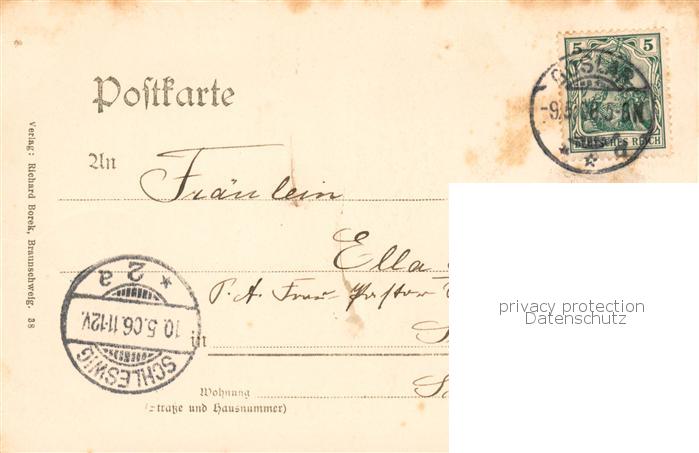 5 5
GOSLAR
DEUTSCHES REICH
Postkarte
An
Fräulein
Ella
p. A. Frau Pastor
in
Wohnung
(Straße und Hausnummer)
Verlag: Richard Borek, Braunschweig. 38
SCHLESWIG
10.5.06.11-12V.
* 2 a
privacy protection
Datenschutz